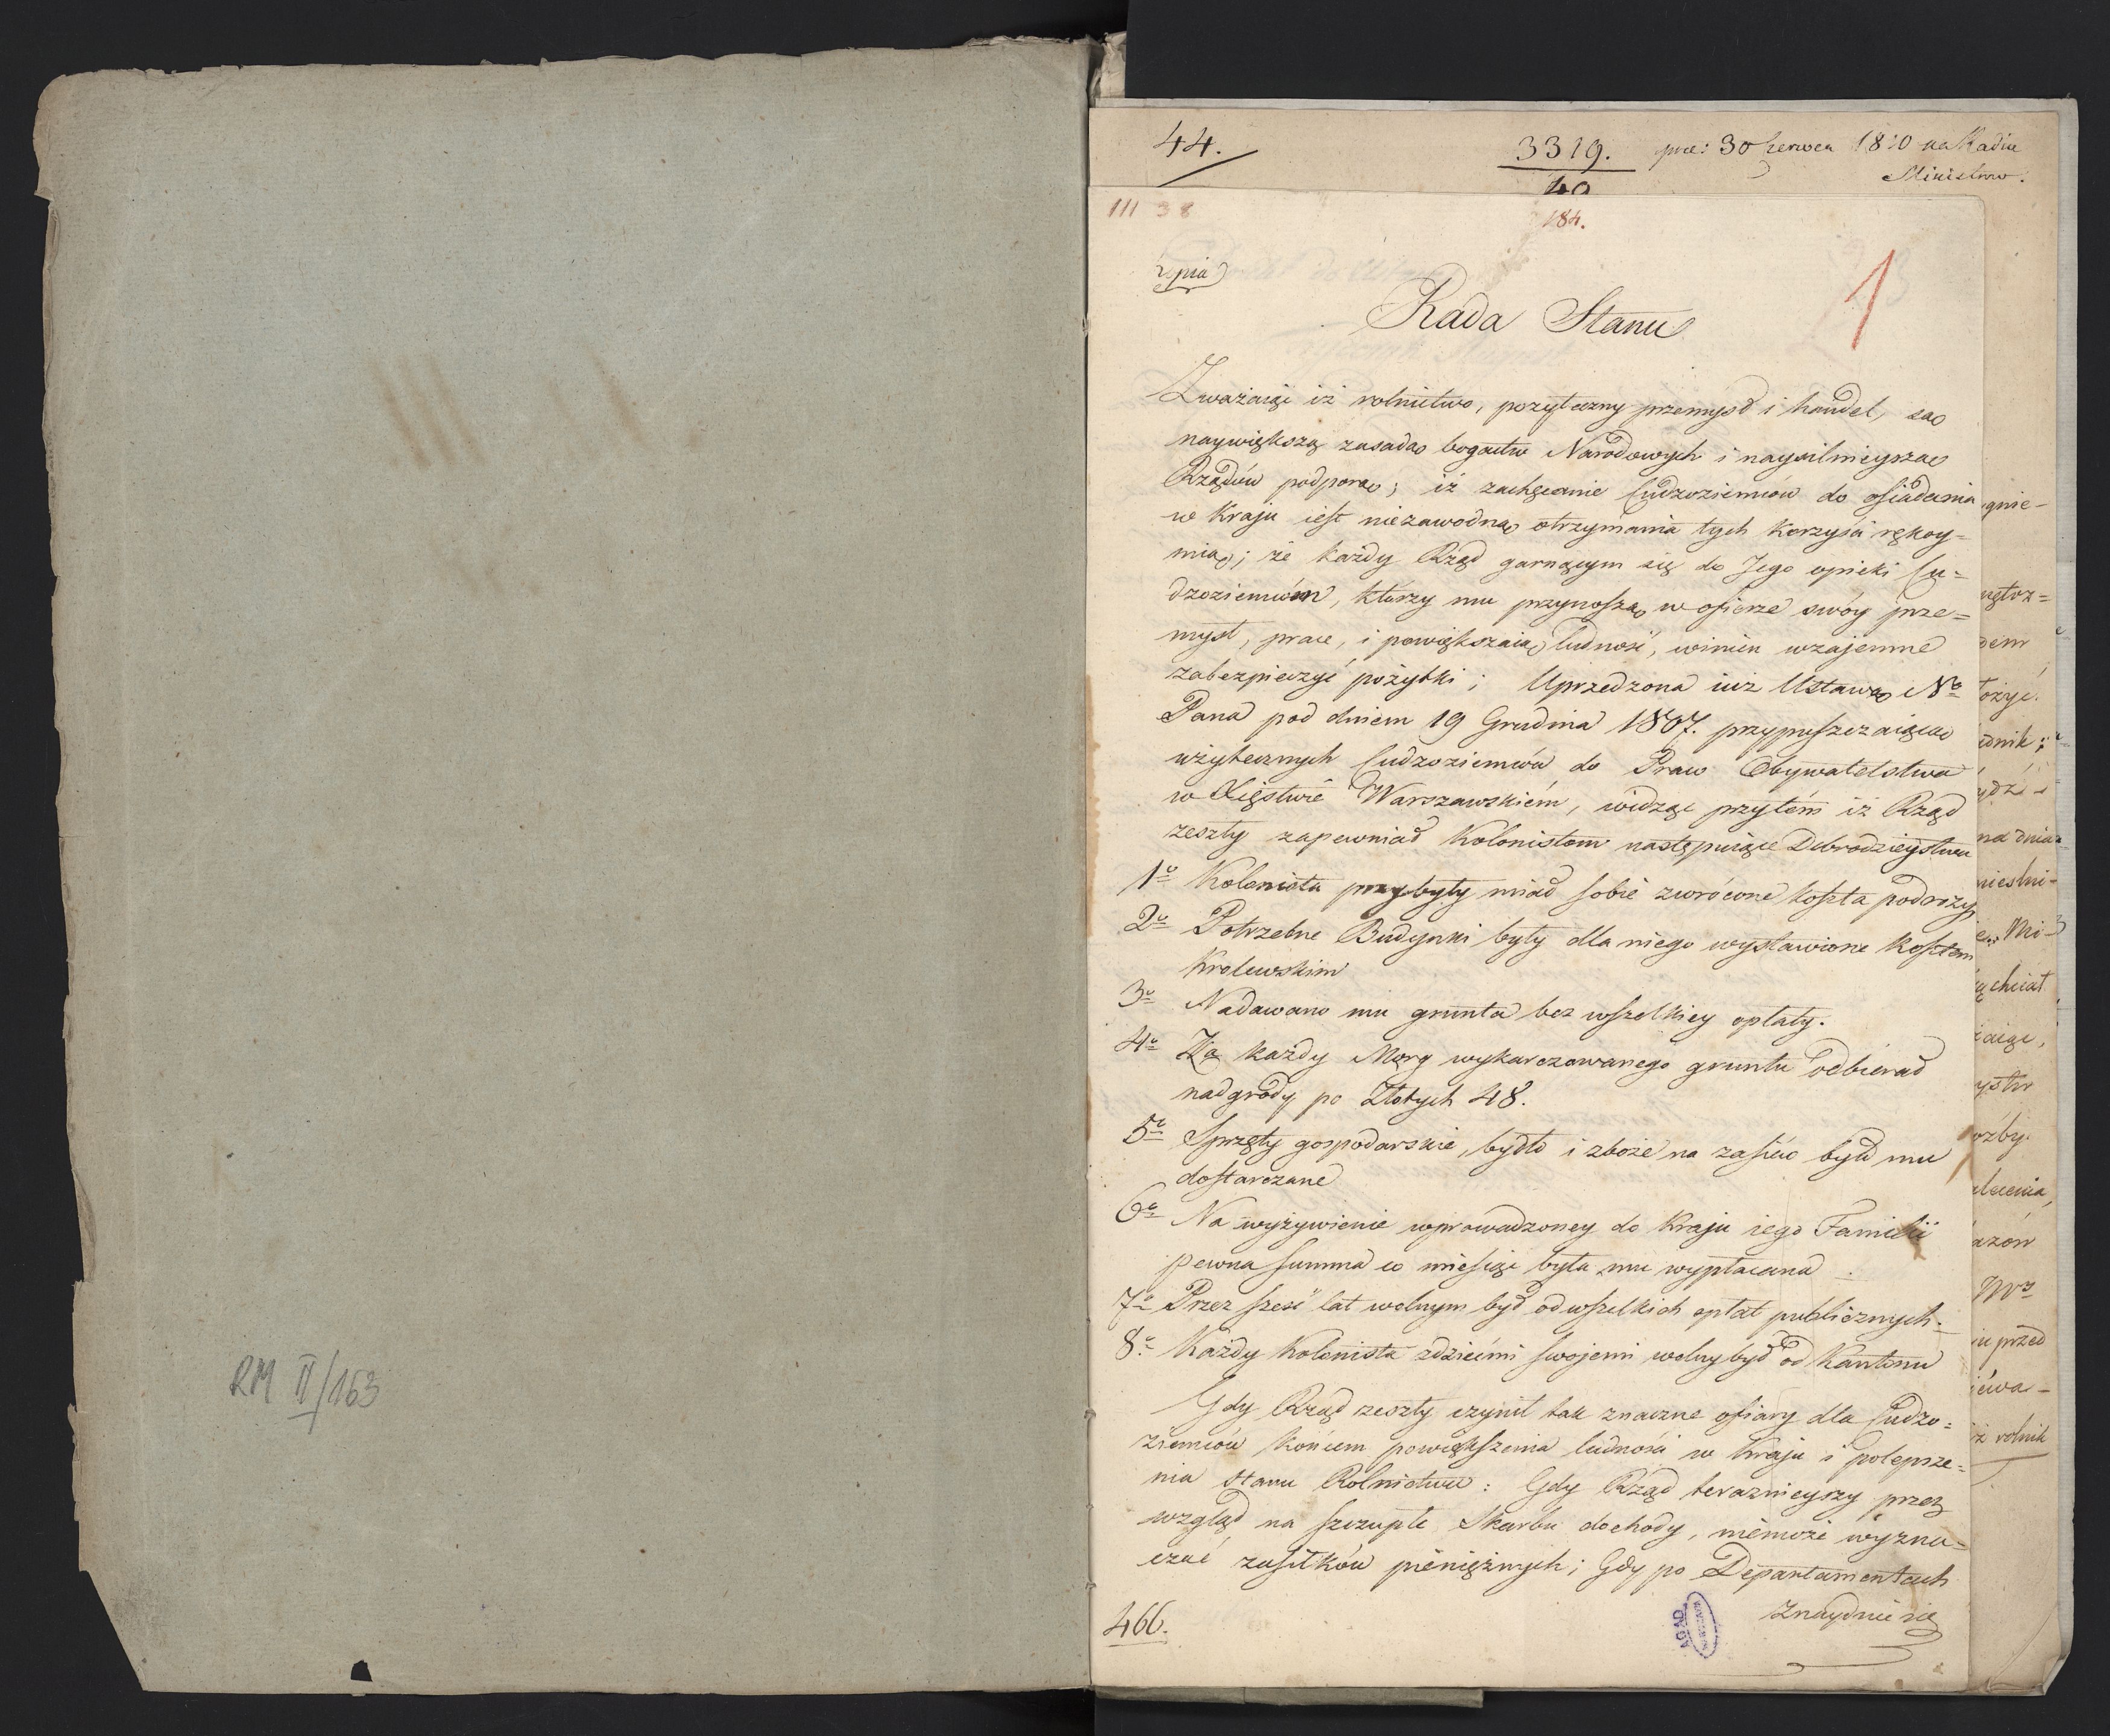 RM II/163
44.
3319. prae: 30 Czerwca 1810 na Radzie
Ministrów.
40
III 38
184.
1
Kopia
Rada Stanu
Zważaiąc iż rolnictwo, pożyteczny przemysł i handel, są
naywiększą zasadą bogactw Narodowych i naysilnieyszą
Rządów podporą; iż zachęcanie Cudzoziemców do osiadania
w Kraju iest niezawodną otrzymania tych korzyści rękoy=
mią; że każdy Rząd garnącym się do Jego opieki Cu=
dzoziemcom, którzy mu przynoszą w ofierze swóy prze=
mysł, prace, i powiększaią ludność, winien wzajemne
zabezpieczyć pożytki; Uprzedzona iuż Ustawą No
Pana pod dniem 19 Grudnia 1807. przypuszczaiącą
użytecznych Cudzoziemców do Praw Obywatelstwa
w Xięstwie Warszawskiém, widząc przytém iż Rząd
zeszły zapewniał Kolonistom następuiące Dobrodzieystwa
1o Kolonista przybyły miał sobie zwrócone koszta podroży
2o Potrzebne Budynki były dla niego wystawione kosztem
Krolewskim
3o Nadawano mu grunta bez wszelkiey opłaty.
4o Za każdy Morg wykarczowanego gruntu odbierał
nadgrody po Złotych 48.
5o Sprzęty gospodarskie, bydło i zboże na zasiew było mu
dostarczane
6o Na wyżywienie wprowadzoney do Kraju iego Familii
pewna summa co miesiąc była mu wypłacana
7o Przez sześć lat wolnym był od wszelkich opłat publicznych.
8o Każdy Kolonista zdziećmi swojemi wolny był od Kantonu
Gdy Rząd zeszły czynił tak znaczne ofiary dla Cudzo=
ziemców końcem powiększenia ludności w kraju i polepsze=
nia stanu Rolnictwa: Gdy Rząd teraznieyszy przez
wzgląd na szczupłe Skarbu dochody, niemoże wyzna=
czać zasiłków pieniężnych; Gdy po Departamentach
znayduie się
466.
AGAD